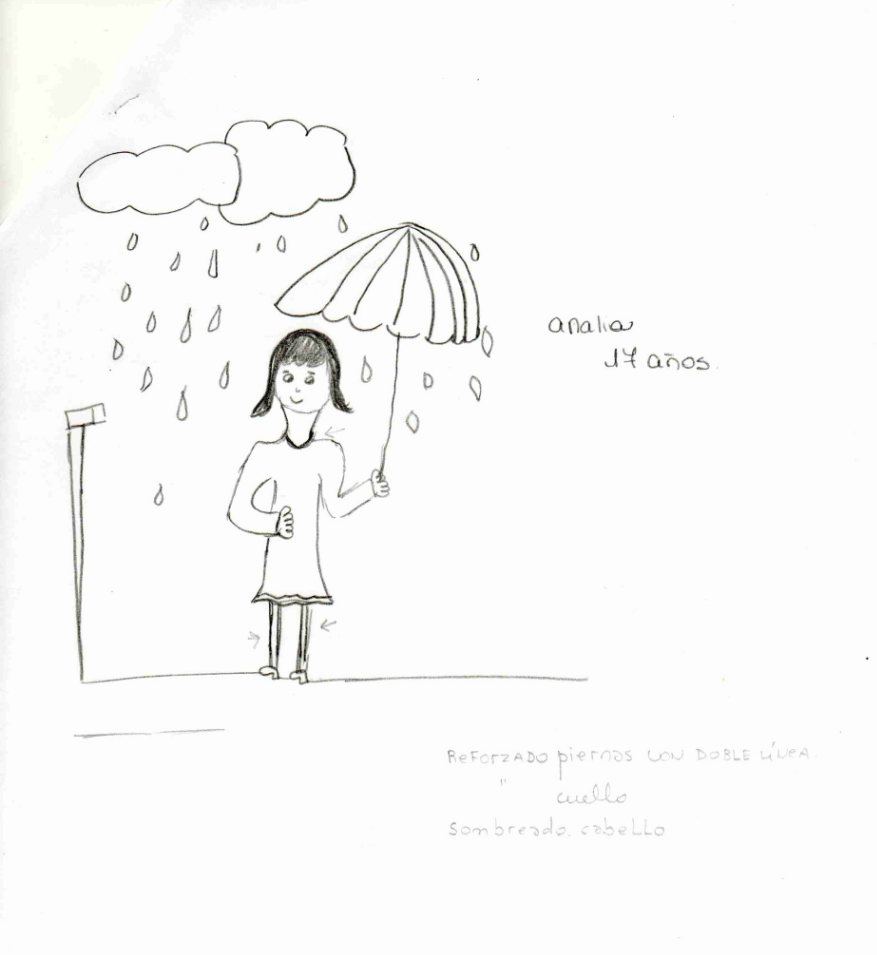 analia
17 años.
REFORZADO piernas CON DOBLE LÍNEA.
" cuello
sombreado. cabello